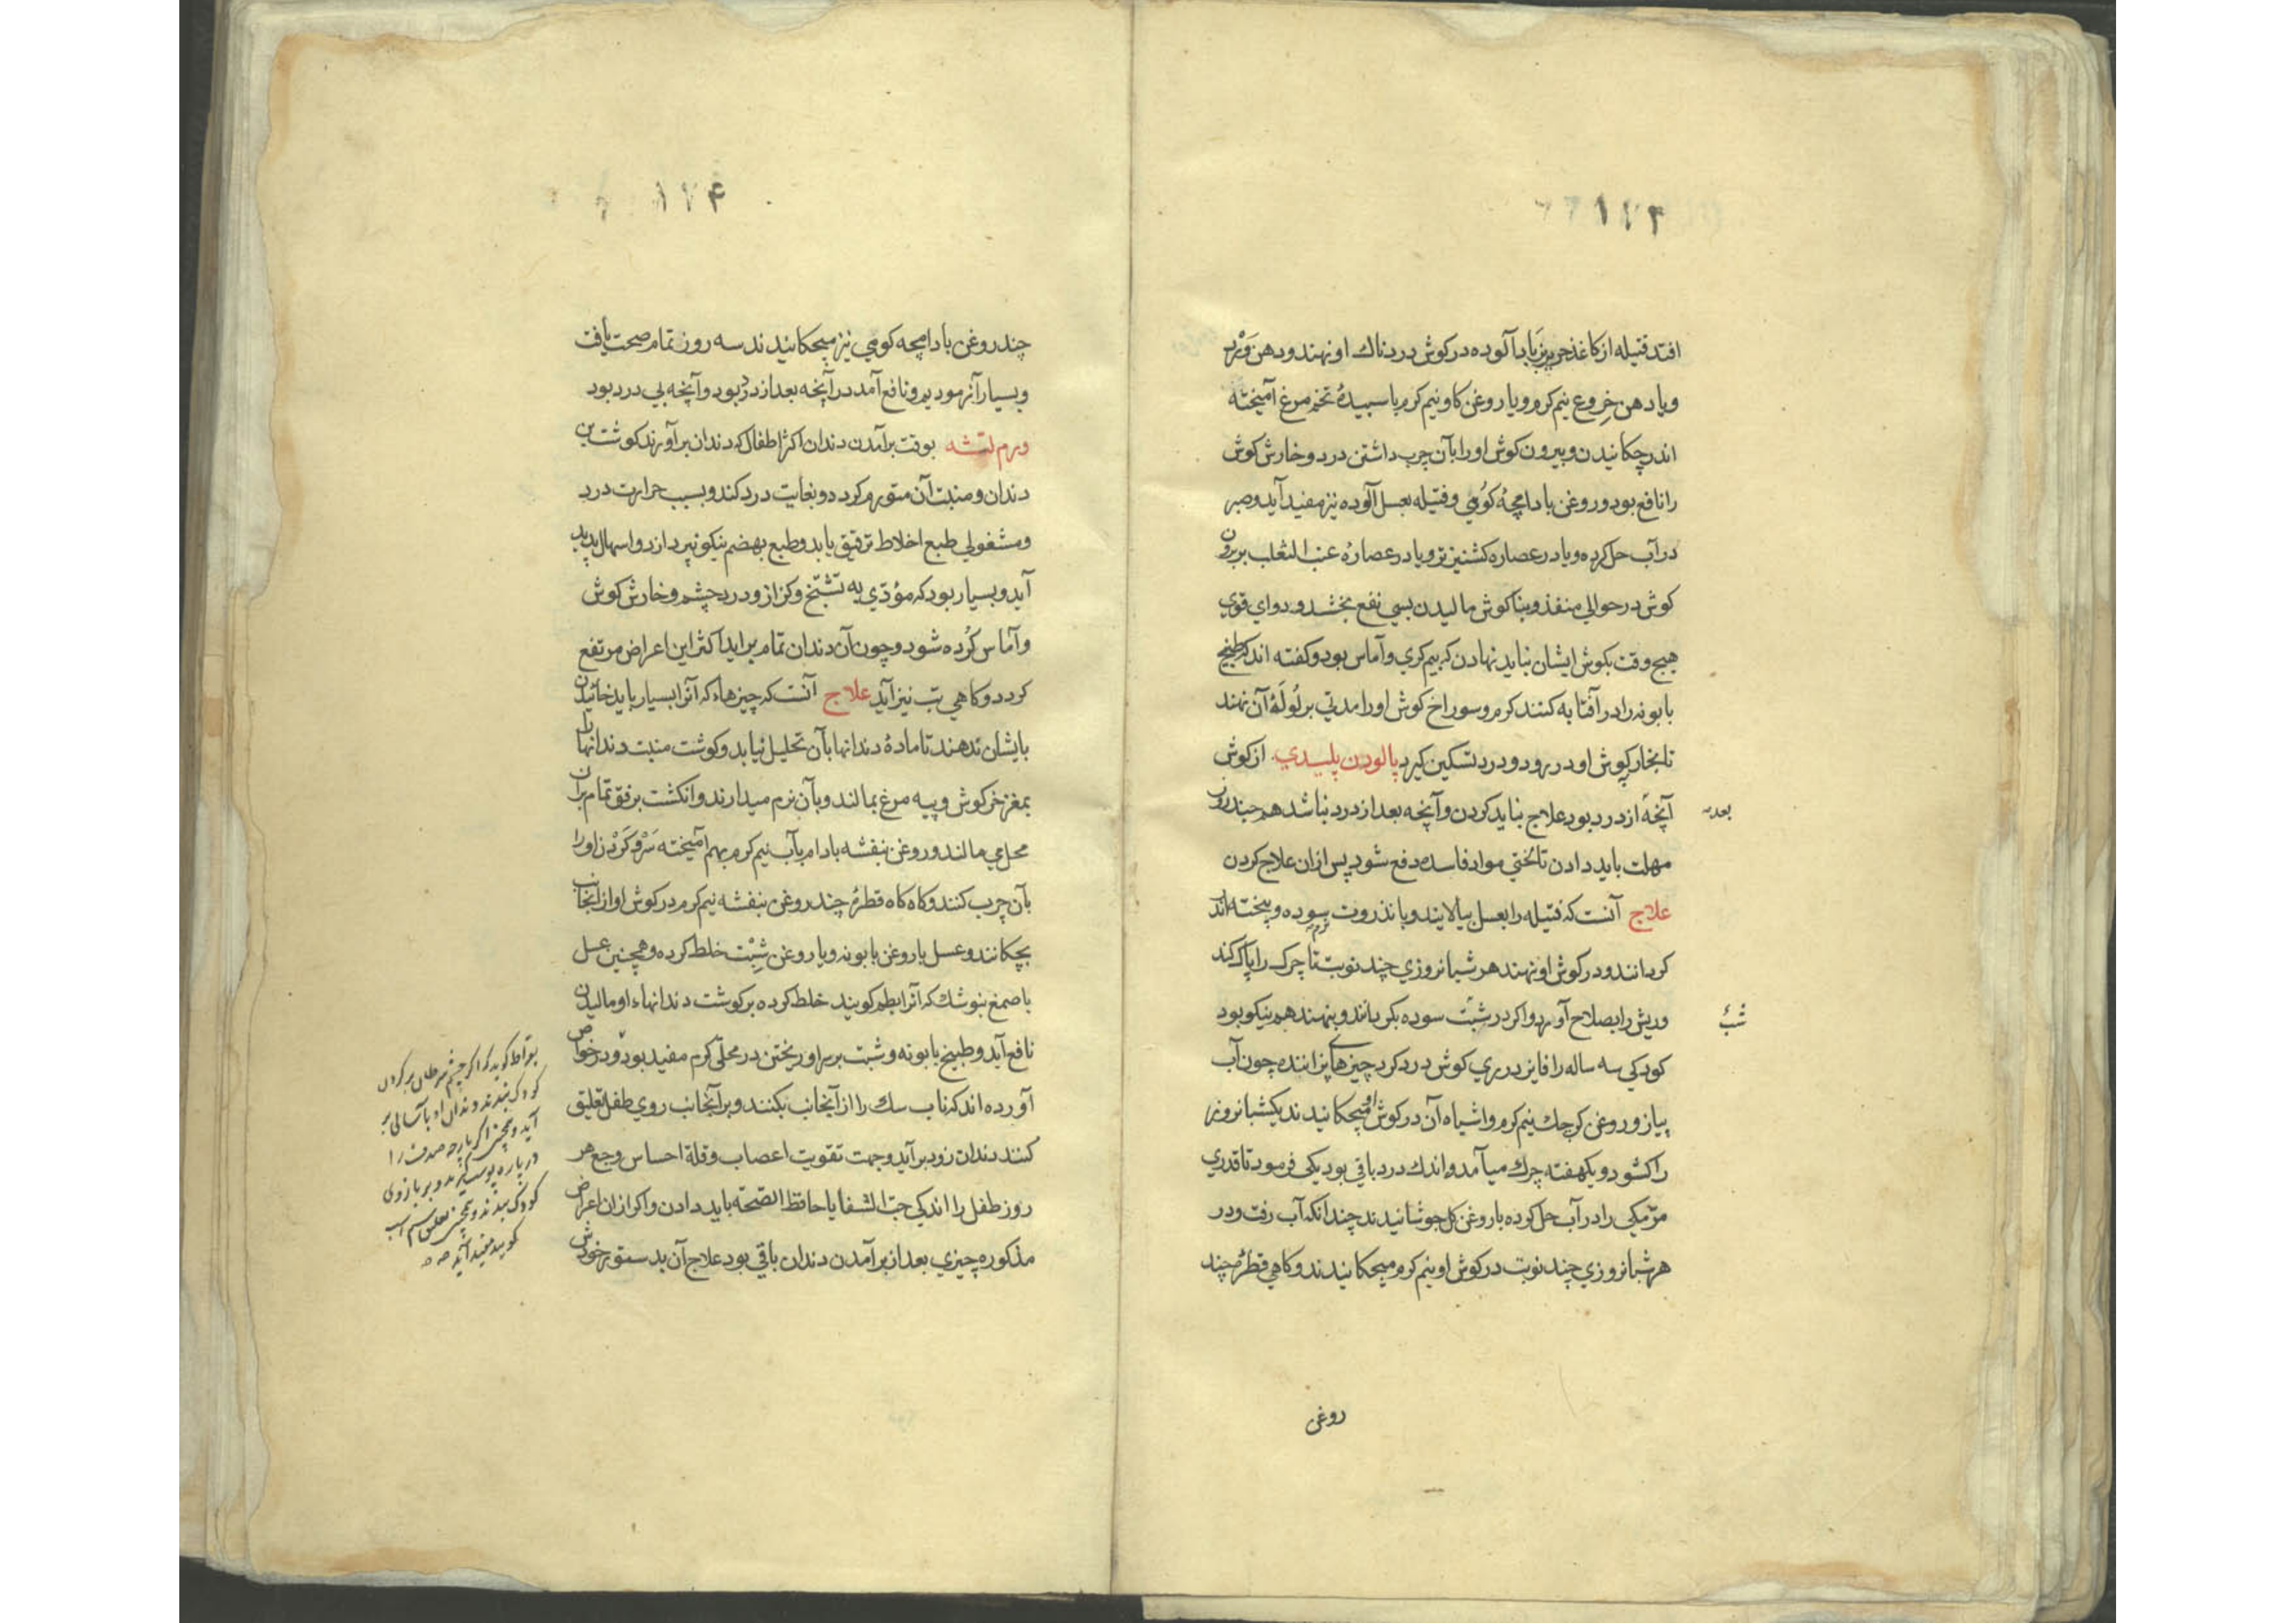 ۱۷۳
افتد فتیله از کاغذ حریر بزباد آلوده در کوش دردناك او نهند ودهن ورد
ویا دهن خروع نیم کرم ویا روغن کاو نیم کرم با سپیدهٔ تخم مرغ آمیخته
اندر چکانیدن وبیرون کوش او را بآن چرب داشتن درد وخارش کوش
را نافع بود وروغن بادامچهٔ کوهی وفتیله بعسل آلوده نیز مفید آید وصبر
در آب حل کرده ویا در عصاره کشنیز تر ویا در عصارهٔ عنب الثعلب بر برون
کوش در حوالی منفذ وبناکوش مالیدن بسی نفع بخشد ودوای قوی
هیچ وقت بکوش ایشان نباید نهادن که بیم کری وآماس بود وکفته اند که طبیخ
بابونه را در آفتابه کنند کرم وسوراخ کوش او را مدتی بر لولهٔ آن نهند
تا بخار بکوش او در رود ودرد تسکین کیرد پالودن پلیدی از کوش
آنچه از درد بود علاج نباید کردن وآنچه بعد از درد نباشد هم چند روز
بعد
مهلت باید دادن تا لختی مواد فاسده دفع شود پس از ان علاج کردن
علاج آنست که فتیله را بعسل بیالایند وبانذروت سوده وپخته اند
نرم
کردانند ودر کوش او نهند هر شبانروزی چند نوبت تا چرك را پاك کند
وریش را بصلاح آورد واکر در شبت سوده بکردانند وبنهند هم نیکو بود
شب
کودکی سه ساله را فایز در ری کوش درد کرد چیزهای پزاننده چون آب
پیاز وروغن کرچك نیم کرم واشباه آن در کوش او میچکانیدند یکشبانروز
را کشود ویکهفته چرك میآمد واندك درد باقی بود یکی فرمود تا قدری
مرّ مکی را در آب حل کرده با روغن کل جوشانیدند چندانکه آب رفت ودر
هر شبانروزی چند نوبت در کوش او نیم کرم میچکانیدند وکاهی قطرهٔ چند
روغن
۱۷۴
چند روغن بادامچه کوهی نیز میچکانیدند سه روز تمام صحت یافت
وبسیار آزمودیم ونافع آمد در آنچه بعد از درد بود وآنچه بی درد بود
ورم لثه بوقت برآمدن دندان اکثر اطفال که دندان برآورند کوشت بن
دندان ومنبت آن متورم کردد وبغایت درد کند وبسبب حرارت درد
ومشغولی طبع اخلاط ترقیق یابد وطبع بهضم نیکو نپردازد واسهال پدید
آید وبسیار بود که مؤدّی به تشنّج وکزاز ودرد چشم وخارش کوش
وآماس کرده شود وچون آن دندان تمام برآید اکثر این اعراض مرتفع
کردد وکاهی تب نیز آید علاج آنست که چیزهاء که آنرا بسیار باید خائیدن
بایشان ندهند تا مادهٔ دندانها بآن تحلیل نیابد وکوشت منبت دندانها را
بمغز خرکوش وپیه مرغ بمالند وبآن نرم میدارند وانکشت برفق تمام بران
محل می مالند وروغن بنفشه بادام بآب نیم کرم بهم آمیخته سر وکردن او را
بآن چرب کنند وکاه کاه قطرهٔ چند روغن بنفشه نیم کرم در کوش او از آنجانب
بچکانند وعسل با روغن بابونه ویا روغن شبت خلط کرده وهمچنین عسل
با صمغ بنوشك که آنرا بطم کویند خلط کرده بر کوشت دندانهاء او مالیدن
نافع آید وطبیخ بابونه وشبت بر سر او ریختن در محلی کرم مفید بود ودر خواص
آورده اند که ناب سك را از آنجانب بکنند وبر آنجانب روی طفل تعلیق
کنند دندان زود برآید وجهت تقویت اعصاب وقلة احساس وجع هر
روز طفل را اندکی حبّ الشفا یا حافظ الصحّه باید دادن واکر از ان اعراض
مذکوره چیزی بعد از برآمدن دندان باقی بود علاج آن بدستور خودش
بقراط کوید که اکر چشم سرطان بر کردن
کودک بندند دندان او بآسانی بر
آید وهمچنین اکر پارچه صدف را
در پاره پوست کیرند وبر بازوی
کودک بندند وهمچنین تعلیق سم اسب
کویند مفید آید